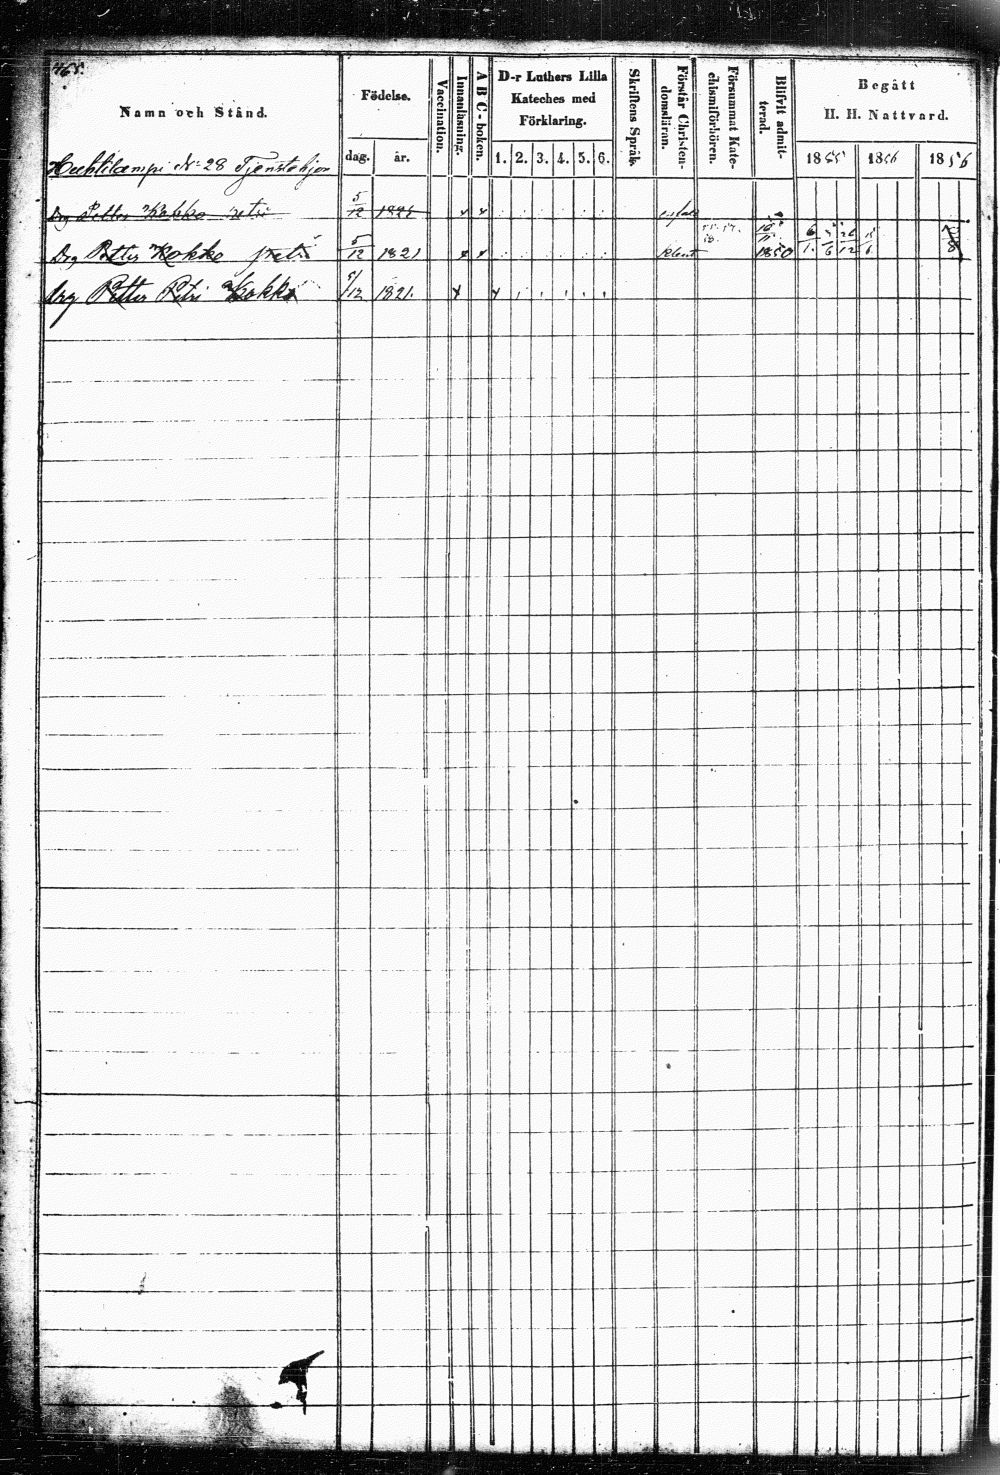 468.
Namn och Stånd.
Födelse.
dag.
år.
Vaccination.
Innanläsning.
A B C-boken.
D-r Luthers Lilla
Kateches med
Förklaring.
1. 2. 3. 4. 5. 6.
Skriftens Språk.
Förstår Christen-
domsläran.
Försummat Kate-
chismiförhören.
Blifvit admit-
terad.
Begått
H. H. Nattvard.
1855 1856 1856
Huhtilampi No 28 Tjenstehjon
Drg Petter Kokko 5/12 1821
Drg Petter Kokko 5/12 1821 1850
drg Petter Petri Kokko 5/12 1821.